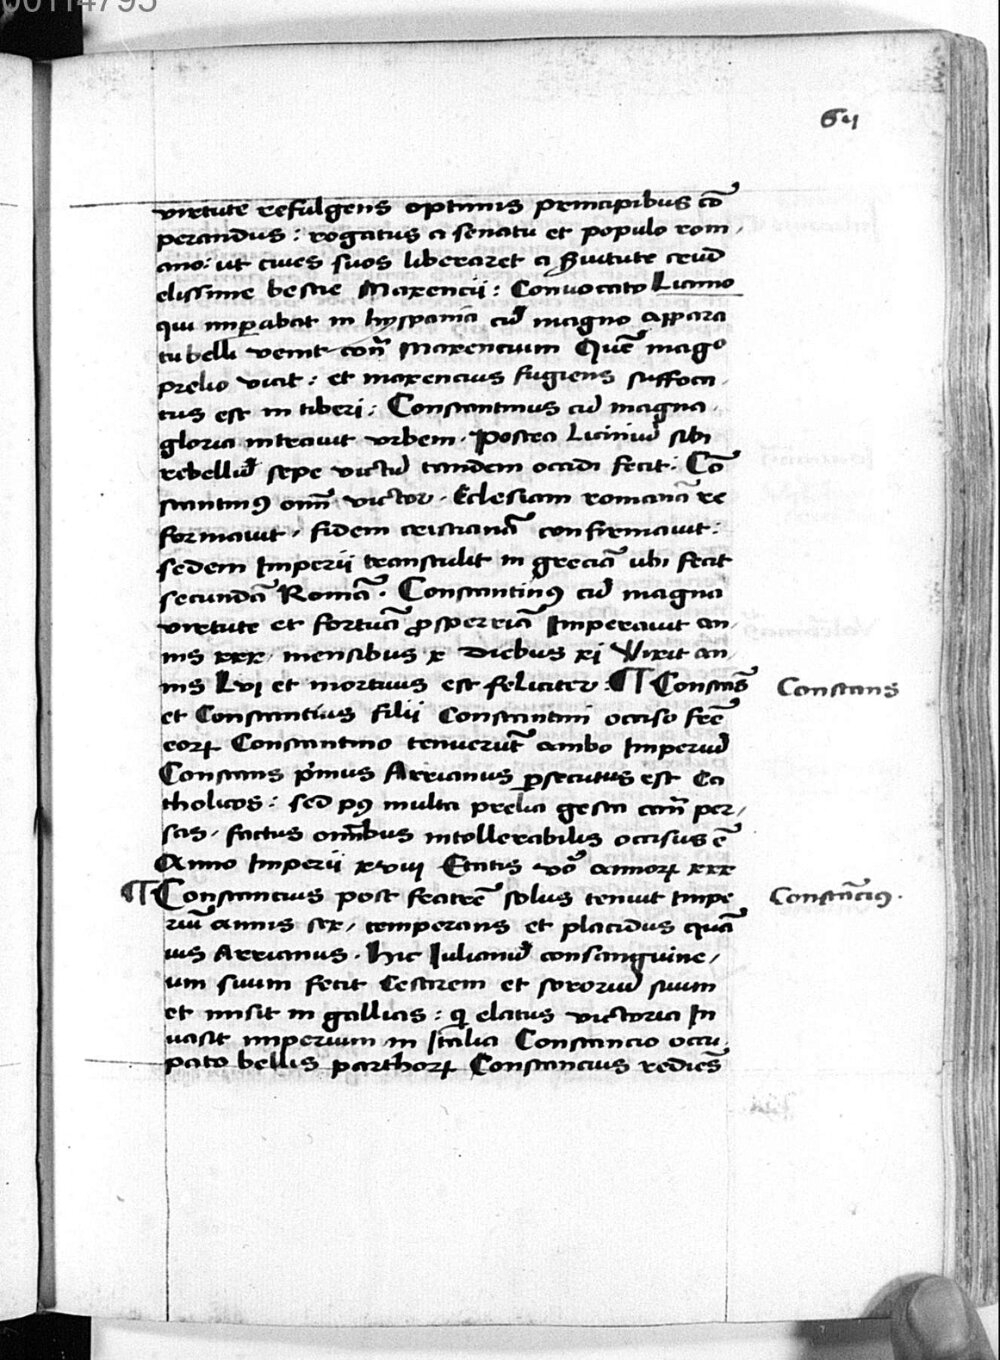 00114795
64
virtute refulgens optimis principibus cō
perandus : rogatus a senatu et populo rom,
ano: ut cives suos liberaret a s̄uitute crud
elissime bestie Maxencii : Convocato Licinio
qui imꝑabat in hyspania cū magno appara
tu belli venit con̄ Maxencium Quē mago
prelio vicit : et maxencius fugiens suffoca,
tus est in tiberi : Constantinus cū magna,
gloria intravit urbem. Postea Liciniū sibi
rebellū sepe victū tandem occidi fecit. Cō
stantinꝰ om̄ victor. Eclesiam romanā re
formavit, fidem cristianā confirmavit :
sedem Imperii transtulit in greciā ubi fecit
secundā Romā. Constantinꝰ cū magna
virtute et fortūa ꝓsperriā Imperavit an,
nis xxx, mensibus x diebus xi Vixit an,
nis Lvi et mortuus est feliciter : ¶ Constās
Constans
et Constantius filii Constantini occiso frē
eoꝝ Constantino tenuerūt ambo Imperiū
Constans pͥmus Arrianus ꝑsecutus est Ca
tholicos : sed pꝰ multa prelia gesta can̄ per,
sas, factus om̄ibus intollerabilis occisus ē
Anno Imperii xviii Etatis vͦo annoꝝ xxx
¶ Constancius post fratrē solus tenuit Impe
Constācius.
riū annis sex, temperans et placidus quā
vis Arrianus. Hic Iulianū consanguine,
um suum fecit Cesarem et sororiū suum
et misit in gallias : qͥ elatus victoria In
vasit imperium in Italia Constancio occu,
pato bellis parthoꝝ Constancius rediēs